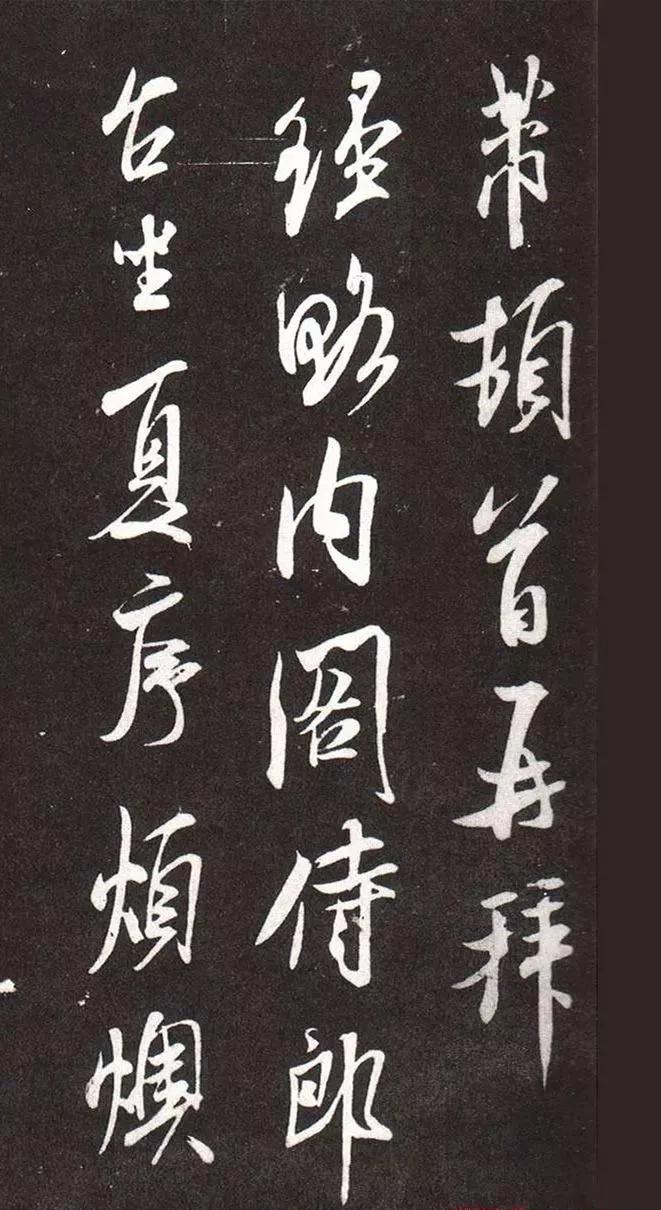 芾頓首再拜
經略内閣侍郎
台坐夏序煩燠